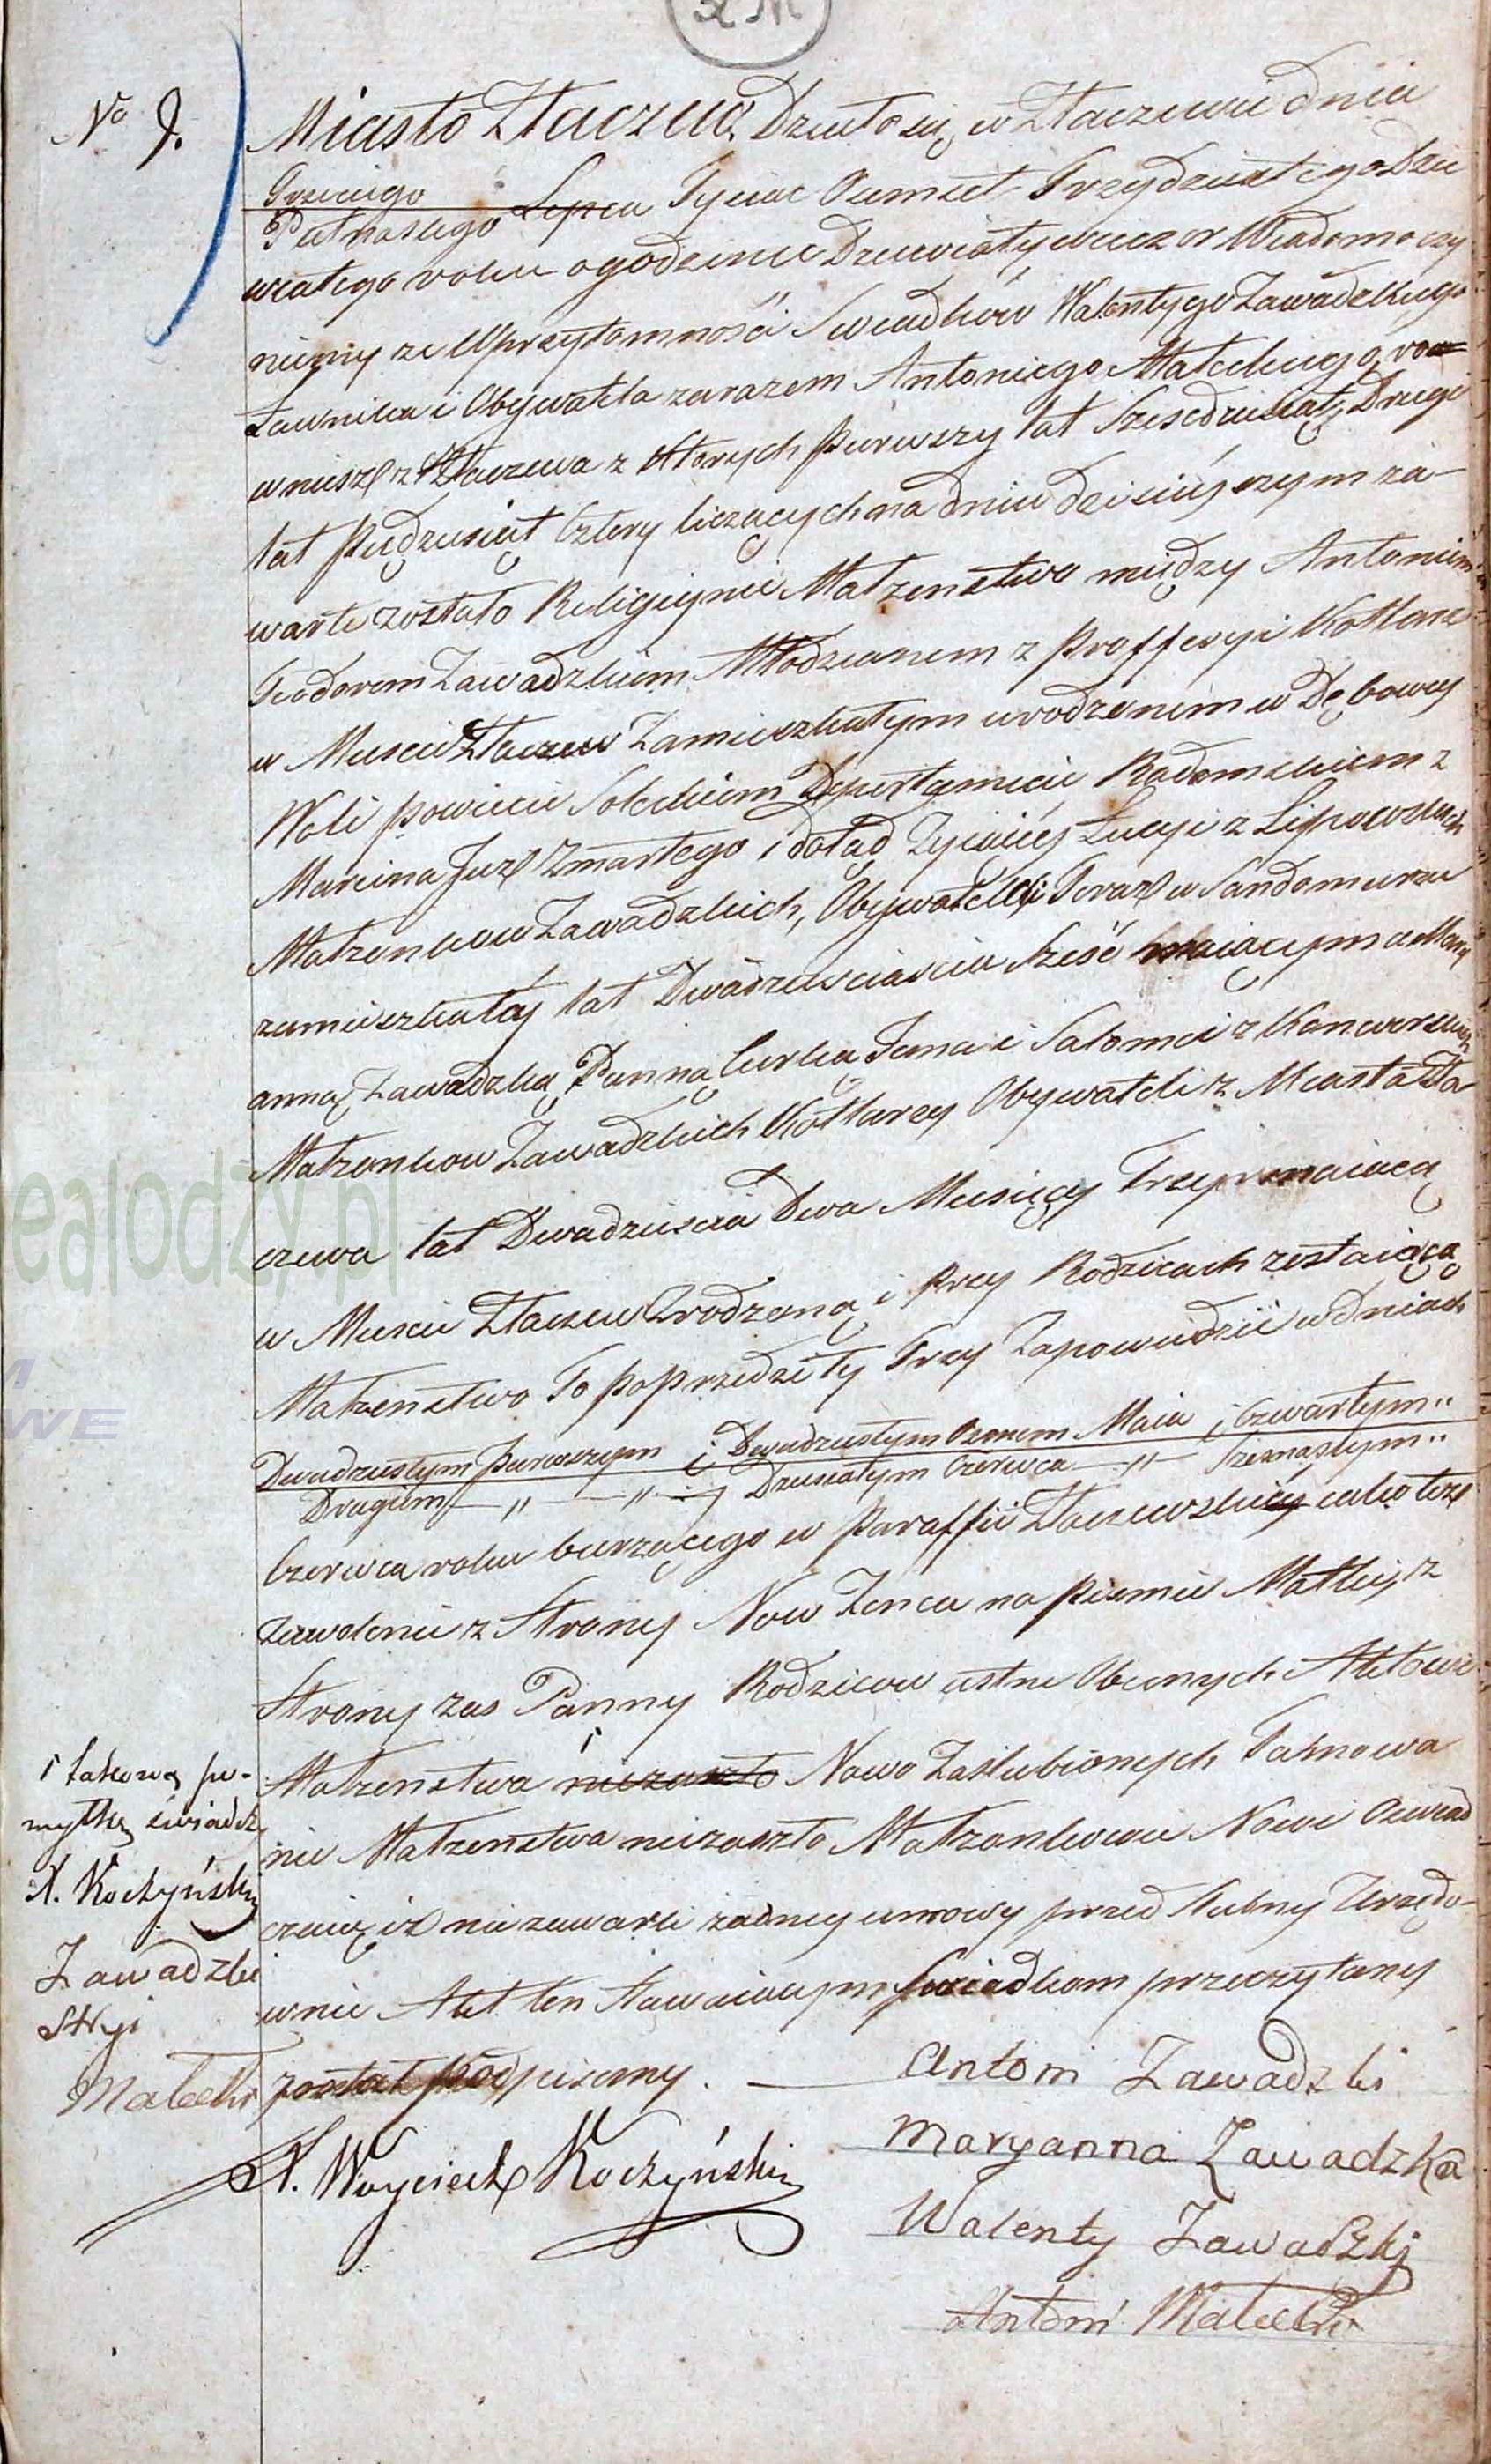 No 9.
Miasto Złaczew. Działo się w Złaczewie dnia
Trzeciego
Piętnastego Lipca Tysiąc Osmset Trzydziestego Dzie
wiątego roku o godzinie Dziewiąty wieczor Wiadomo czy
niemy ze w przytomności Swiadków Walentygo Zawadzkiego
Ławnika i Obywatela zarazem Antoniego Małeckiego row
wniesz z Złaczewa z których pierwszy lat Szescdziesiąt, Drugi
lat Piędziesiąt Cztery liczących na dniu dzisiéjszym za-
warte zostało Religijnie Małzenstwo między Antonim
Teodorem Zawadzkiem Młodzianem z Proffesyi Kotlarz
w Miescie Złaczew Zamieszkałym urodzonem w Dębowey
Woli powiecie Soleckiem Departamecie Radomskiem z
Marcina Juz Zmarłego i dotąd Zyiący Łucyi z Lipowskich
Małzonkow Zawadzkich, Obywatelki Teraz w Sandomierzu
zamieszkałej lat Dwadziesciascia Sześć maiącym a Mary
anną Zawadzką Panną Curką Jana i Salomei z Kanwerskich
Małzonkow Zawadzkich Kotlarzy Obywateli z Miasta Zła-
czewa lat Dwadziescia Dwa Miesięcy Trzy maiącą
w Miescie Złaczew Zrodzoną i przy Rodzicach zostaiącą
Małzenstwo To poprzedziły Trzy Zapowiedzii w dniach
Dwadziestym pierwszym i Dwudziestym Osmem Maia i Czwartym
Drugiem — " — " — i Dziesiątym Czerwca — " — Szesnastym
Czerwca roku bierzącego w Paraffii Złaczewskiéy iako tez
Zezwolenie z Strony Now Zenca na pismie Matki, z
Strony zas Panny Rodzicow ustne Obecnych Aktowi
Małzenstwa niezaszło Nowo Zaslubionych Tamowa
nie Małzenstwa niezaszło Małzonkowie Nowi Oswiad
czaią iz nie zawarli zadney umowy przed slubny Urzędo-
wnie Akt ten Stawaiącym Swiadkom przeczytany
został podpisany. —
i takową po-
myłkę świadczą
X. Koczyński
Zawadzki
Stryi
Małecki
X. Woyciech Koczyński
Antoni Zawadzki
Maryanna Zawadzka
Walenty Zawadzki
Antoni Małecki
ealodzy.pl
WE